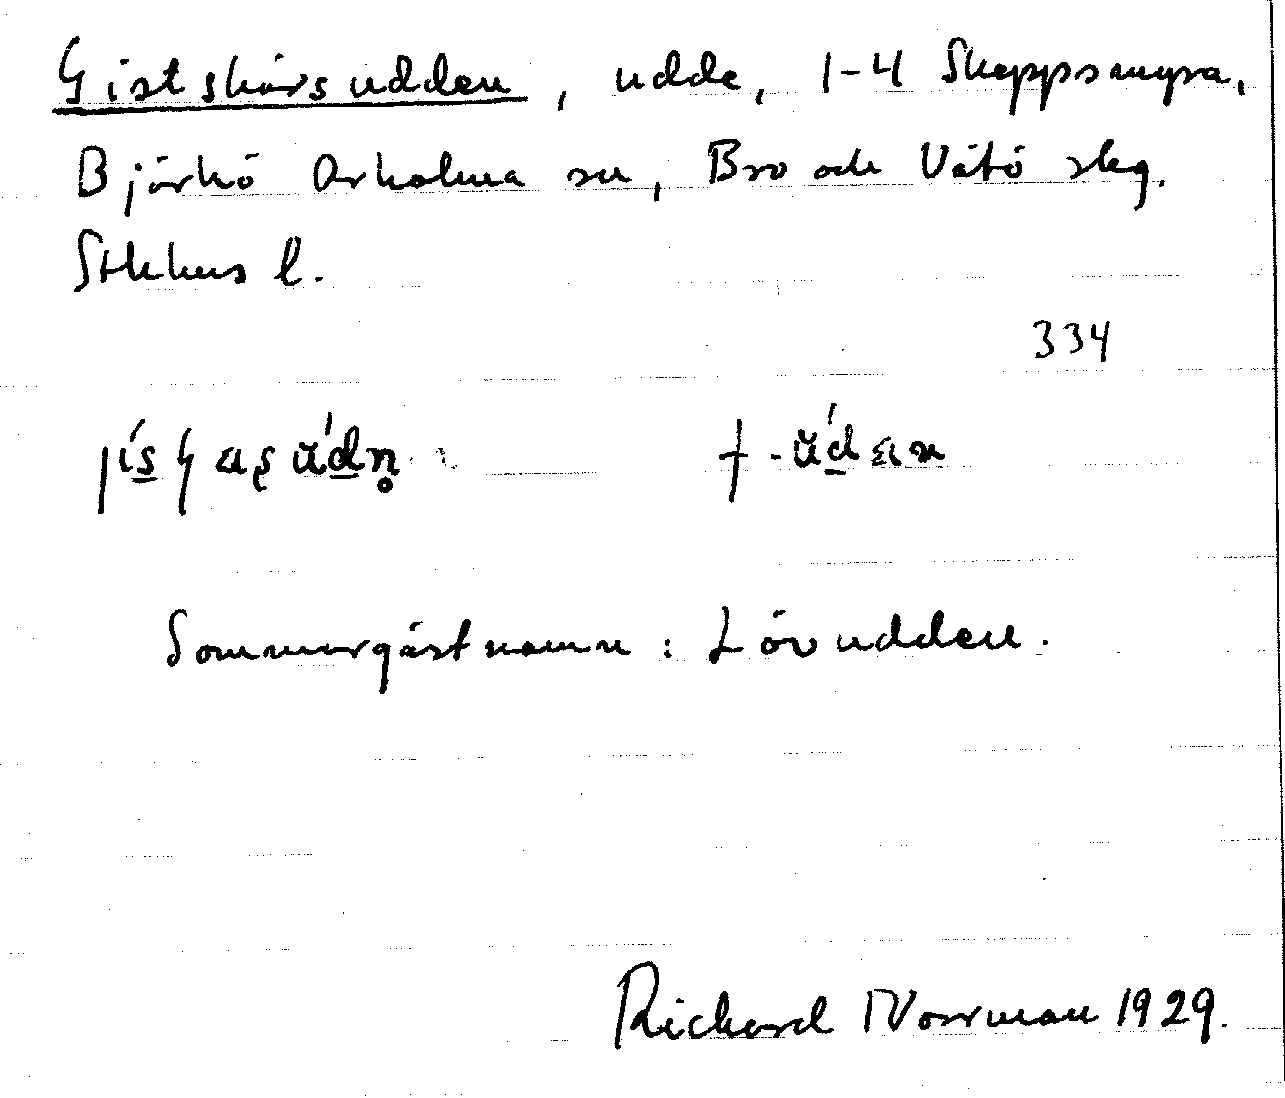 Gistskärsudden, udde, 1-4 Skeppsmyra,
Björkö Arholma sn, Bro och Vätö skg.
Stkhns l.
334
†-ŭ́dan
Sommargästnamn: Lövudden.
Richard Norrman 1929.